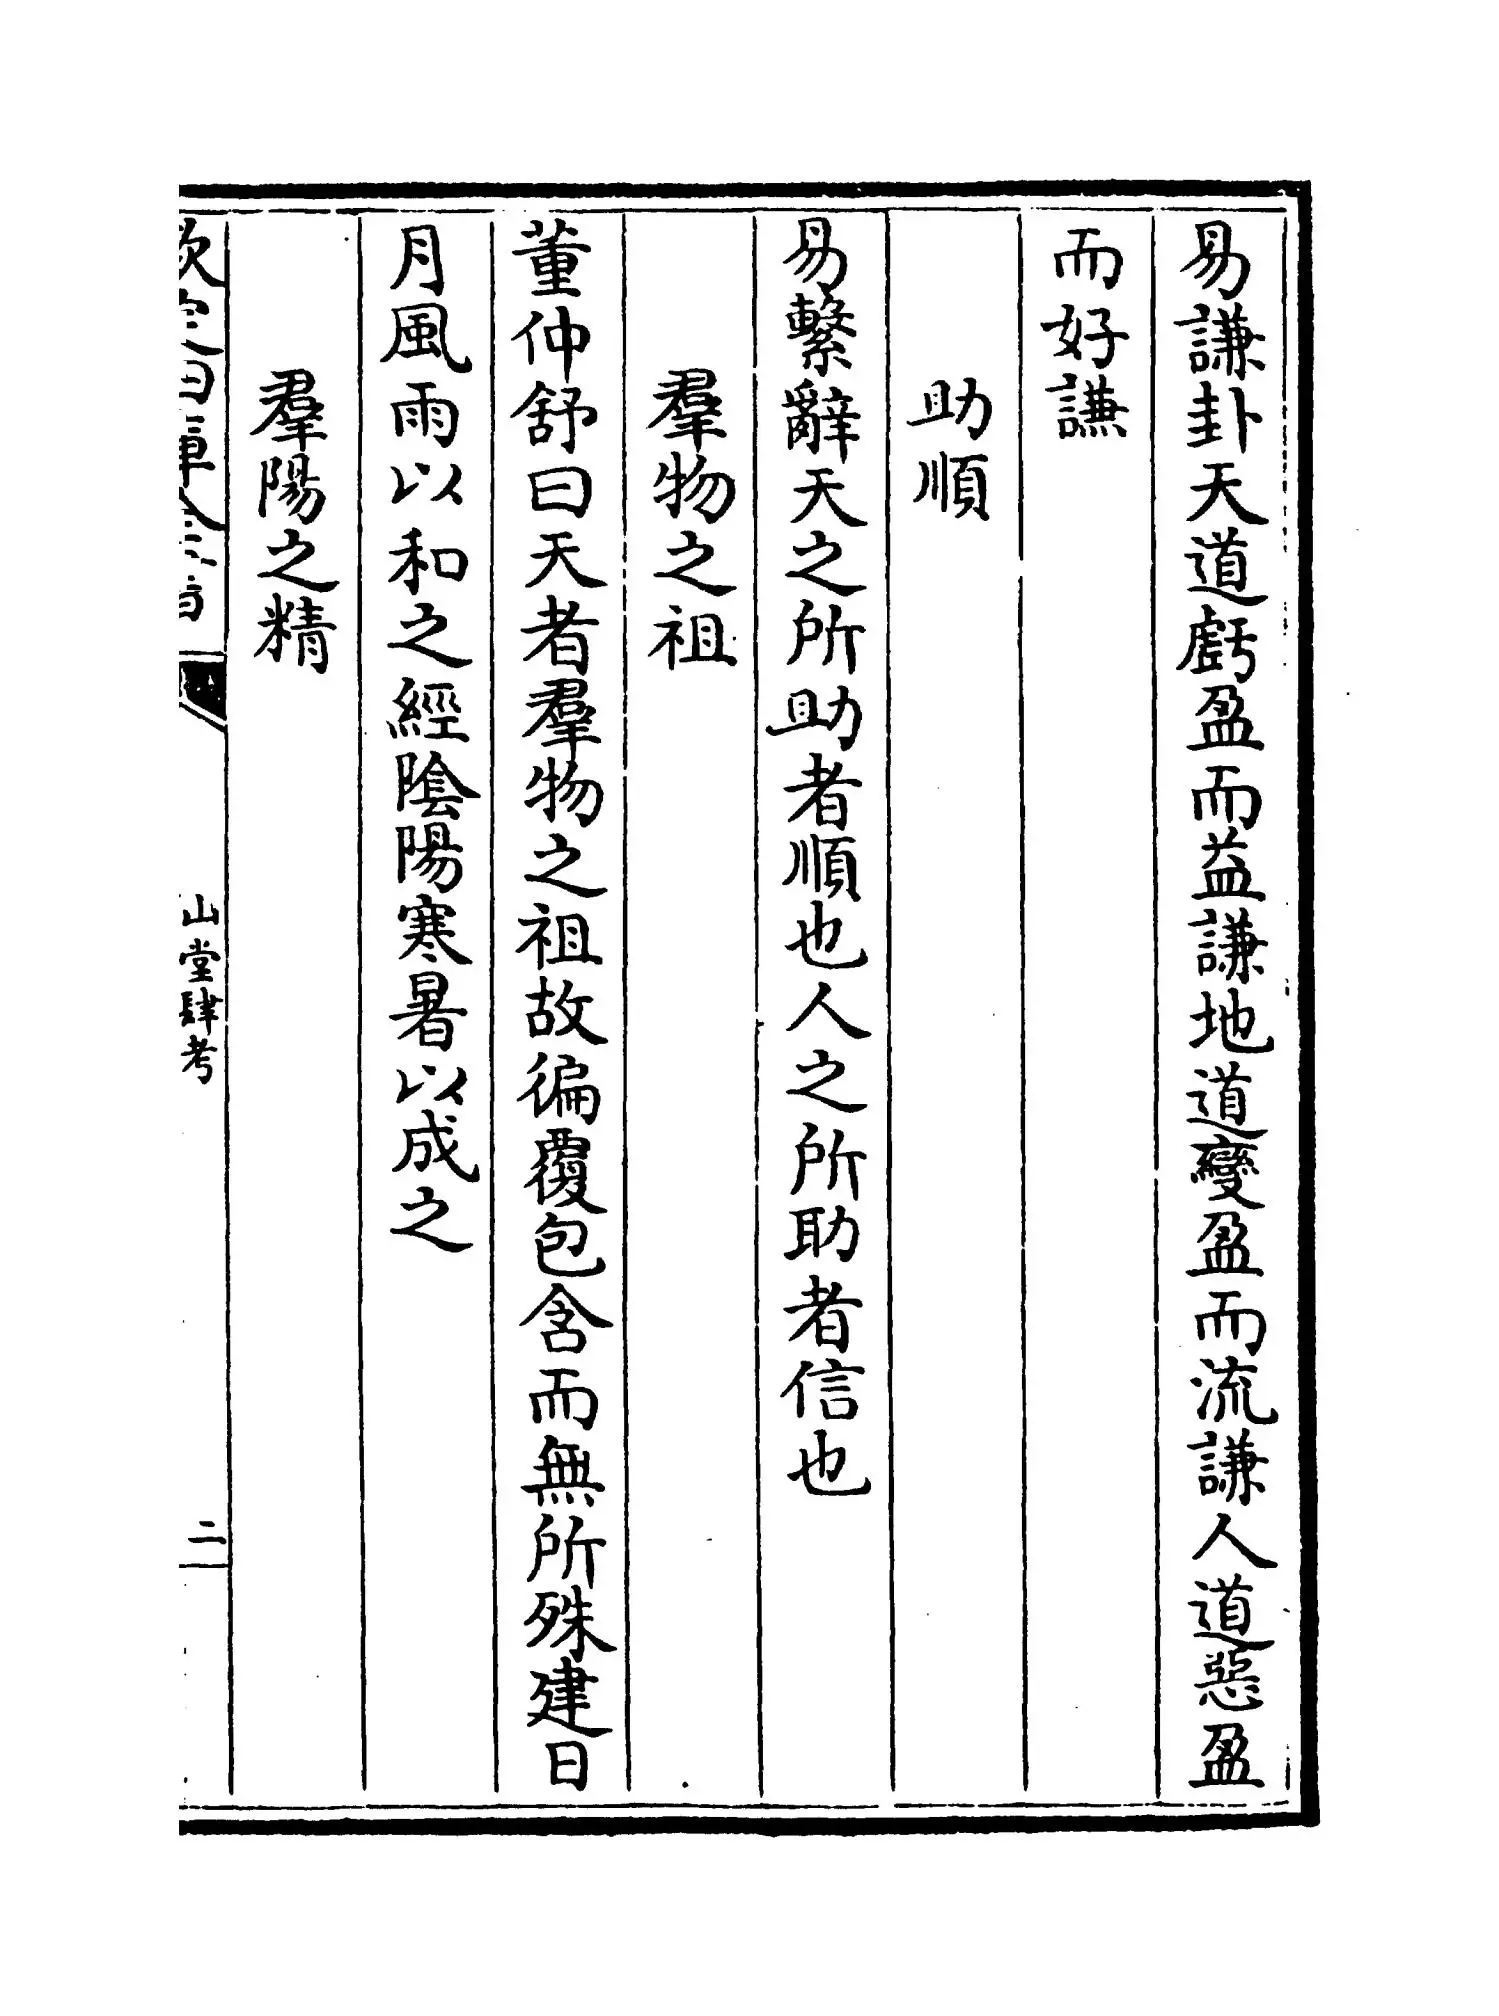 易謙卦天道虧盈而益謙地道變盈而流謙人道惡盈
而好謙
助順
易繫辭天之所助者順也人之所助者信也
羣物之祖
董仲舒曰天者羣物之祖故徧覆包含而無所殊建日
月風雨以和之經陰陽寒暑以成之
羣陽之精
山堂肆考
二